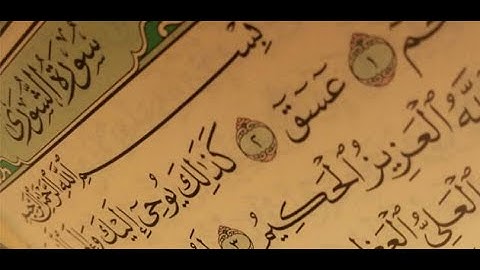 سُورَةُ الشُّورَىٰ
بِسْمِ اللَّهِ الرَّحْمَٰنِ الرَّحِيمِ
حمٓ ١ عٓسٓقٓ ٢ كَذَٰلِكَ يُوحِىٓ إِلَيْكَ
ٱللَّهُ ٱلْعَزِيزُ ٱلْحَكِيمُ ٣
ٱلْعَلِىُّ